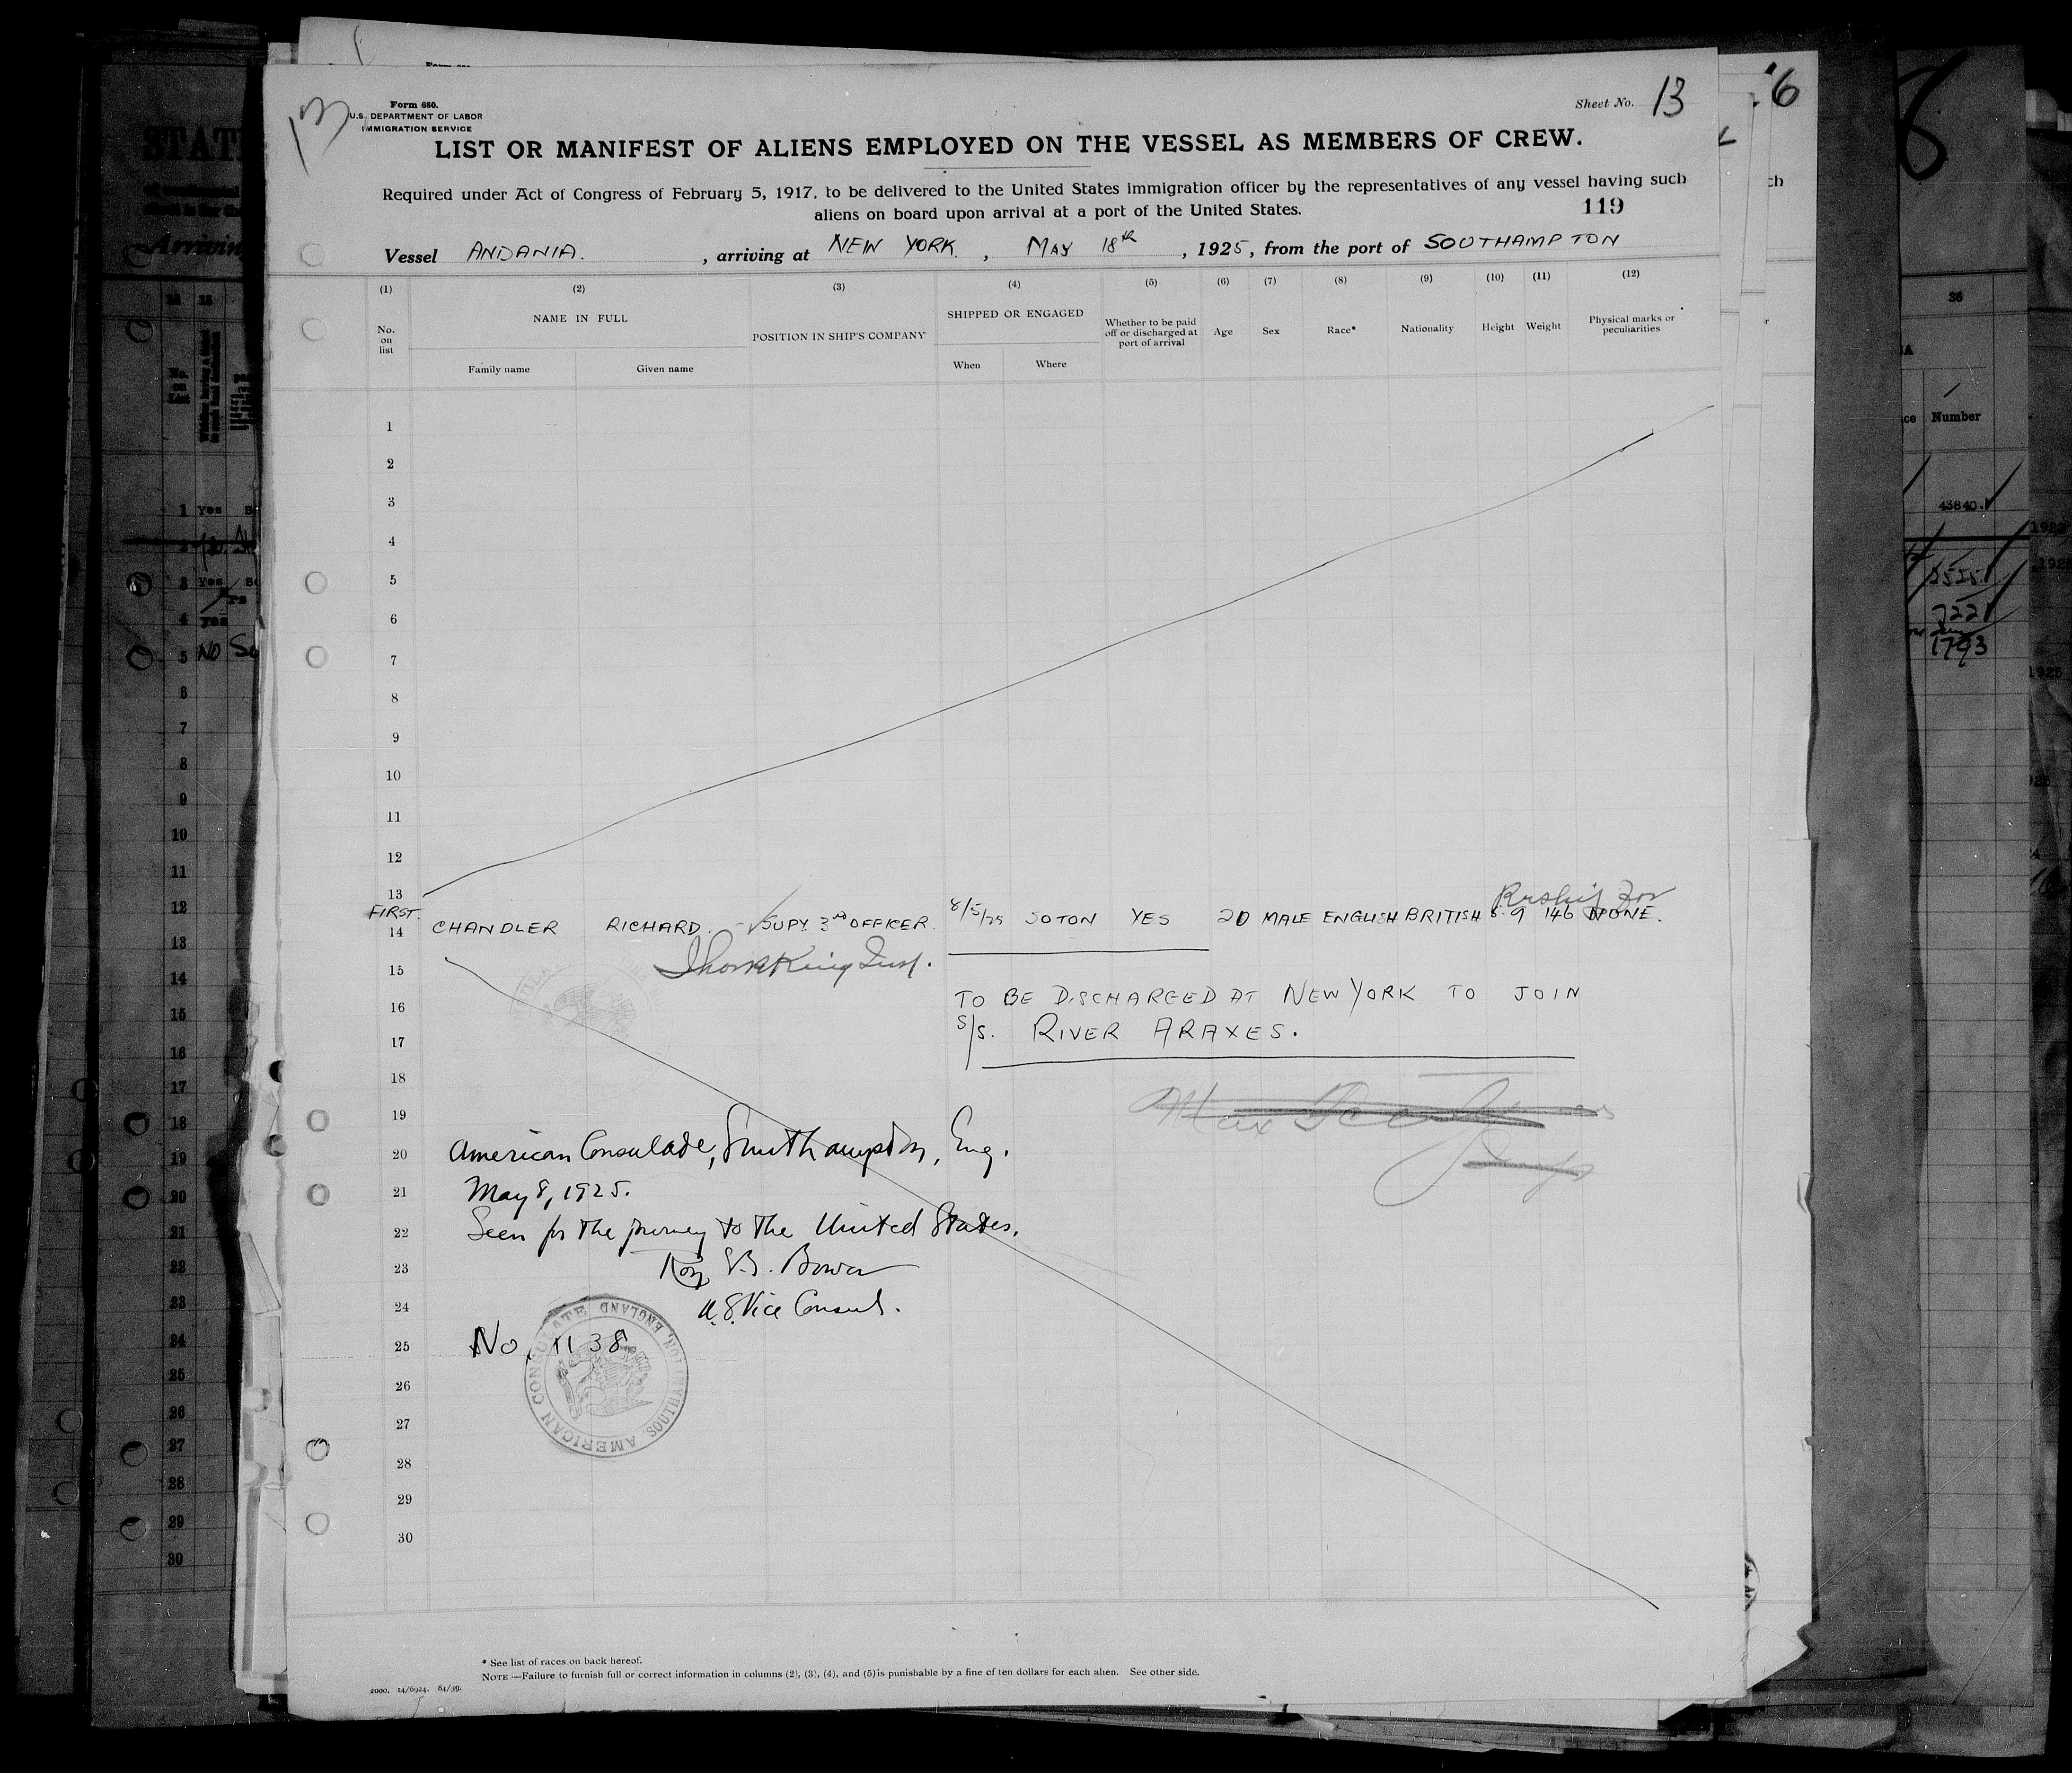 13
Form 680.
U.S. DEPARTMENT OF LABOR
IMMIGRATION SERVICE
Sheet No. 13
LIST OR MANIFEST OF ALIENS EMPLOYED ON THE VESSEL AS MEMBERS OF CREW.
Required under Act of Congress of February 5, 1917, to be delivered to the United States immigration officer by the representatives of any vessel having such
aliens on board upon arrival at a port of the United States.
119
Vessel ANDANIA. , arriving at NEW YORK. , MAY 18th , 1925, from the port of SOUTHAMPTON
(1) (2) (3) (4) (5) (6) (7) (8) (9) (10) (11) (12)
No. on list
NAME IN FULL
Family name Given name
POSITION IN SHIP'S COMPANY
SHIPPED OR ENGAGED
When Where
Whether to be paid off or discharged at port of arrival
Age Sex Race* Nationality Height Weight
Physical marks or peculiarities
1
2
3
4
5
6
7
8
9
10
11
12
13
FIRST.
14 CHANDLER RICHARD. SUPY 3RD OFFICER. 8/5/25 SOTON YES 20 MALE ENGLISH BRITISH 5.9 146 NONE.
15
16 TO BE DISCHARGED AT NEW YORK TO JOIN
17 S/S. RIVER ARAXES.
18
19
20 American Consulate, Southampton, Eng.
21 May 8, 1925.
22 Seen for the journey to the United States.
23 Roy E.B. Bower
24 U.S. Vice Consul.
25 No. 1138
AMERICAN CONSULATE SOUTHAMPTON, ENGLAND
26
27
28
29
30
* See list of races on back hereof.
NOTE—Failure to furnish full or correct information in columns (2), (3), (4), and (5) is punishable by a fine of ten dollars for each alien. See other side.
2000. 14/6924. 84/39.